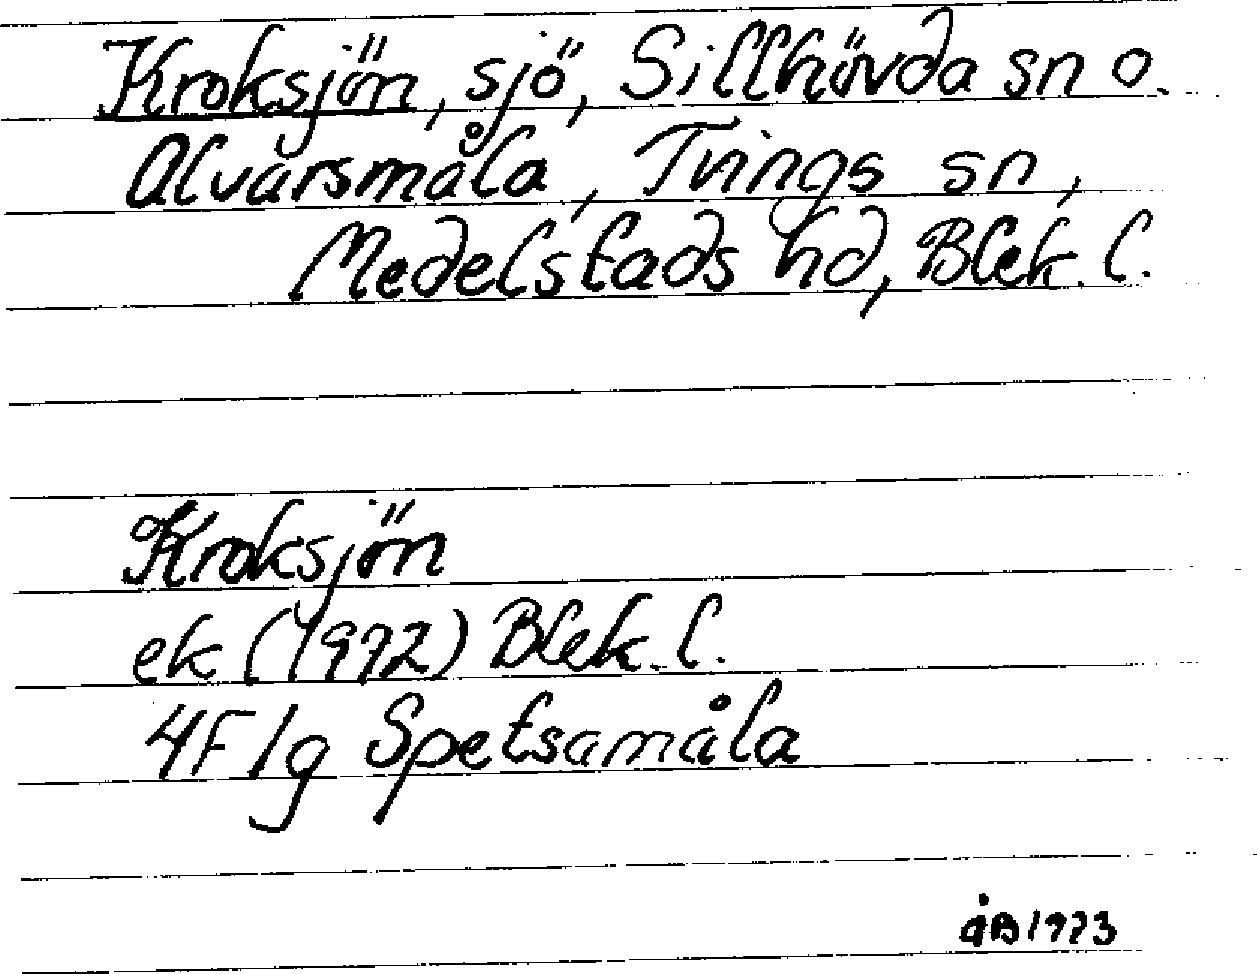 Kroksjön, sjö, Sillhövda sn o.
Alvarsmåla, Tvings sn,
Medelstads hd, Blek. l.
Kroksjön
ek (1972) Blek. l.
4F 1g Spetsamåla
åB 1973